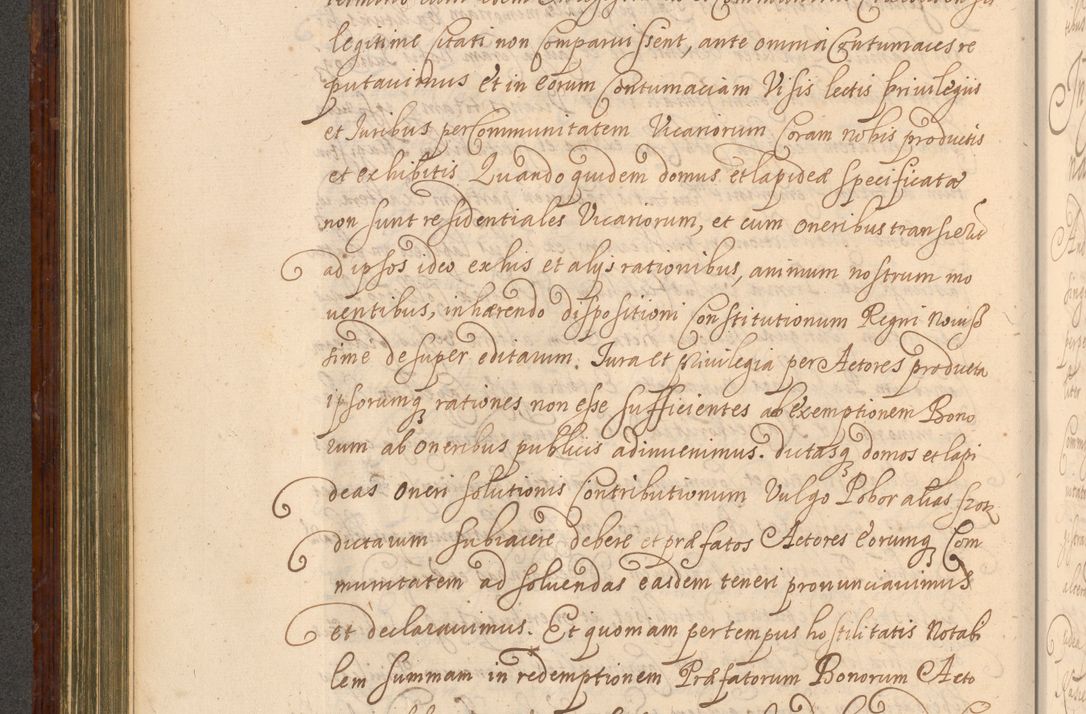 legitime citati non comparuissent, ante omnia Contumaces re
putavimus et in eorum Contumaciam Visis lectis Privilegijs
et Juribus per Communitatem Vicariorum Coram nobis productis
et exhibitis Quando quidem domus et lapideæ specificatæ
non sunt residentiales Vicariorum, et cum oneribus transierūt
ad ipsos ideo ex his et alijs rationibus, animum nostrum mo
ventibus, inhærendo dispositioni Constitutionum Regni Noviss
sime desuper editarum. Jura et Privilegia per Actores producta
ipsorumq rationes non esse sufficientes ab exemptionem Bono
rum ab oneribus publicis adinvenimus. dictasq domos et lapi
deas oneri solutionis Contributionum Vulgo Pobor alias szos
dictarum subiacere debere et præfatos Actores eorumq Com
munitatem ad solvendas easdem teneri pronunciavimus
et declaravimus. Et quoniam per tempus hostilitatis Notabi
lem summam in redemptionem Præfatorum Bonorum Acto